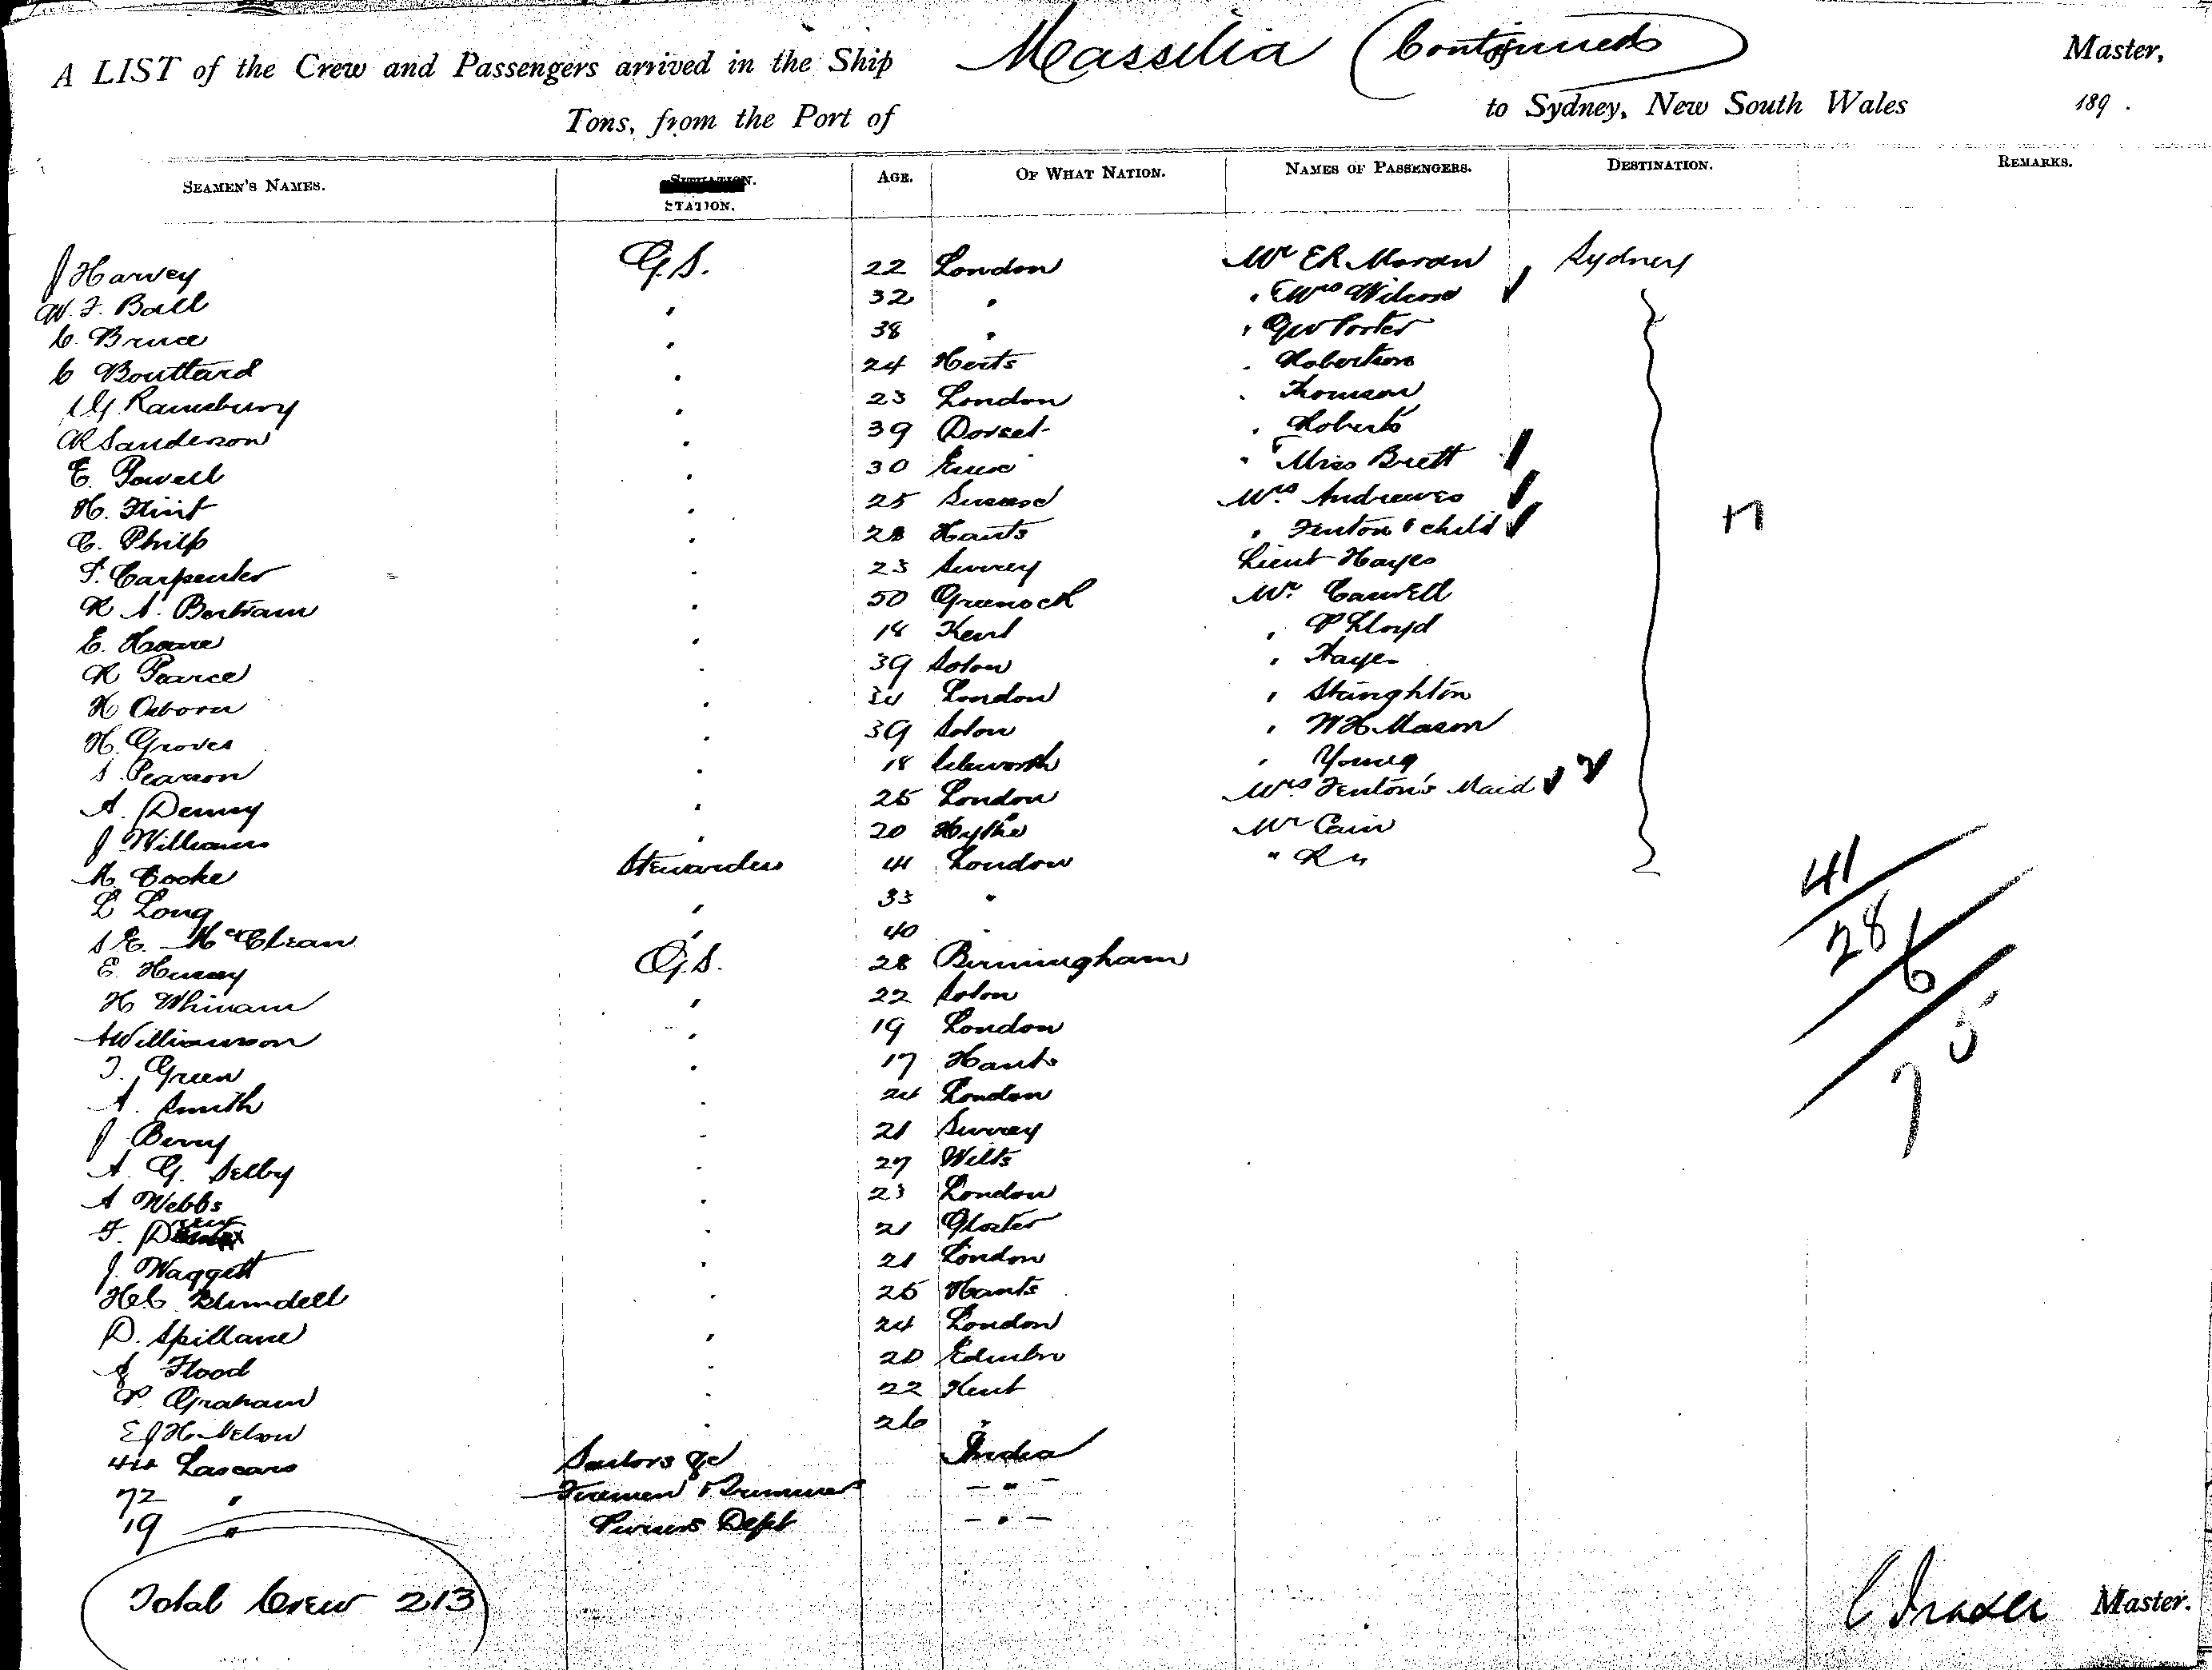 A LIST of the Crew and Passengers arrived in the Ship Massilia (Continued) Master,
Tons, from the Port of to Sydney, New South Wales 189 .
SEAMEN'S NAMES. STATION. AGE. OF WHAT NATION. NAMES OF PASSENGERS. DESTINATION. REMARKS.
J Harvey G.S. 22 London Mr E R Moran Sydney
W. F. Ball " 32 " " & Mrs Wilcox
C. Bruce " 38 " " G W Porter
C Bouttard " 24 Herts " Robertson
W Ramsbury " 23 London " Thomson
A R Sanderson " 39 Dorset " Roberts
E. Powell " 30 Essex " Miss Brett
H. Flint " 25 Sussex Mrs Andrewes
C. Philp " 28 Hants " Fenton & child 17
F. Carpenter " 23 Surrey Lieut Hayes
R S. Bertram " 50 Greenock Mr
E. Hoare " 18 Kent " P Lloyd
R Pearce " 39 Soton " Hayes
H Osborn " 34 London " Staughton
H. Groves " 39 Soton " W H Mason
S. Pearson " 18 Isleworth " Young
A. Denny " 25 London Mrs Fenton's Maid 2
J Williams " 20 Hythe Mr Cain
M Cooke Stewardess 41 London " R "
L Long " 33 "
S E. McClean " 40 "
E. Hussey G.S. 28 Birmingham
H Whinam " 22 Soton
A Williamson " 19 London
T. Green " 17 Hants
A. Smith " 24 London
J Berry " 21 Surrey
A. G. Selby " 27 Wilts
A Webbs " 23 London
F. " 21 Gloster
J. Waggett " 21 London
H C Blundell " 25 Hants
D. Spillane " 24 London
J Flood " 20 Edinbro
P. Graham " 22 Kent
E J H Nelson " 26 "
44 Lascars Sailors &c India
72 " Firemen & Trimmers - " -
19 " Pursers Dept - " -
41
28
6
5
7
Total Crew 213
C Fraser Master.